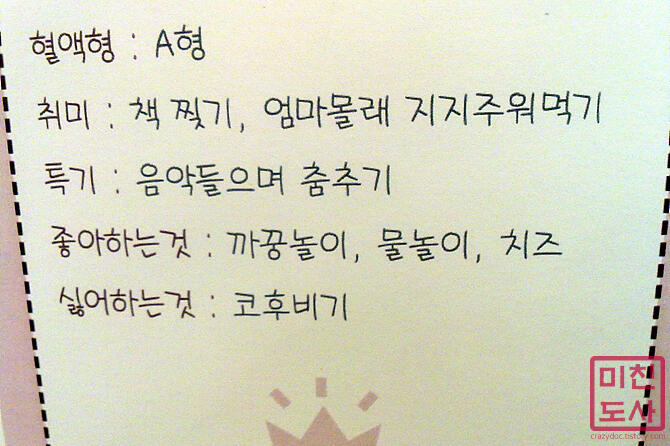 혈액형 : A형
취미 : 책 찢기, 엄마몰래 지지주워먹기
특기 : 음악들으며 춤추기
좋아하는것 : 까꿍놀이, 물놀이, 치즈
싫어하는것 : 코후비기
미친
도사
crazydoc.tistory.com